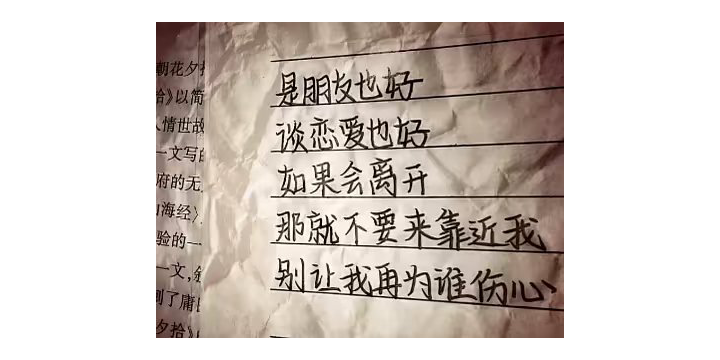 是朋友也好
谈恋爱也好
如果会离开
那就不要来靠近我
别让我再为谁伤心
朝花夕拾
拾》以简
人情世故
一文写的
府的无
山海经》
验的一
一文,
到了庸
夕拾》